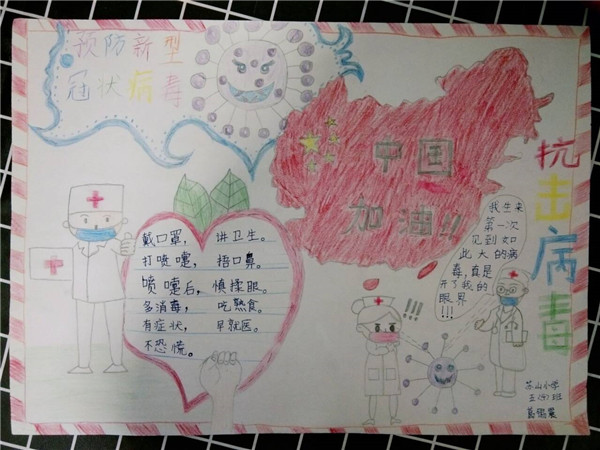 预防新型
冠状病毒
中国
加油!!
抗击病毒
戴口罩，讲卫生。
打喷嚏，捂口鼻。
喷嚏后，慎揉眼。
多消毒，吃熟食。
有症状，早就医。
不恐慌。
我生来
第一次
见到如
此大的病
毒，真是
开了我的
眼界
!!!
!!!
苏山小学